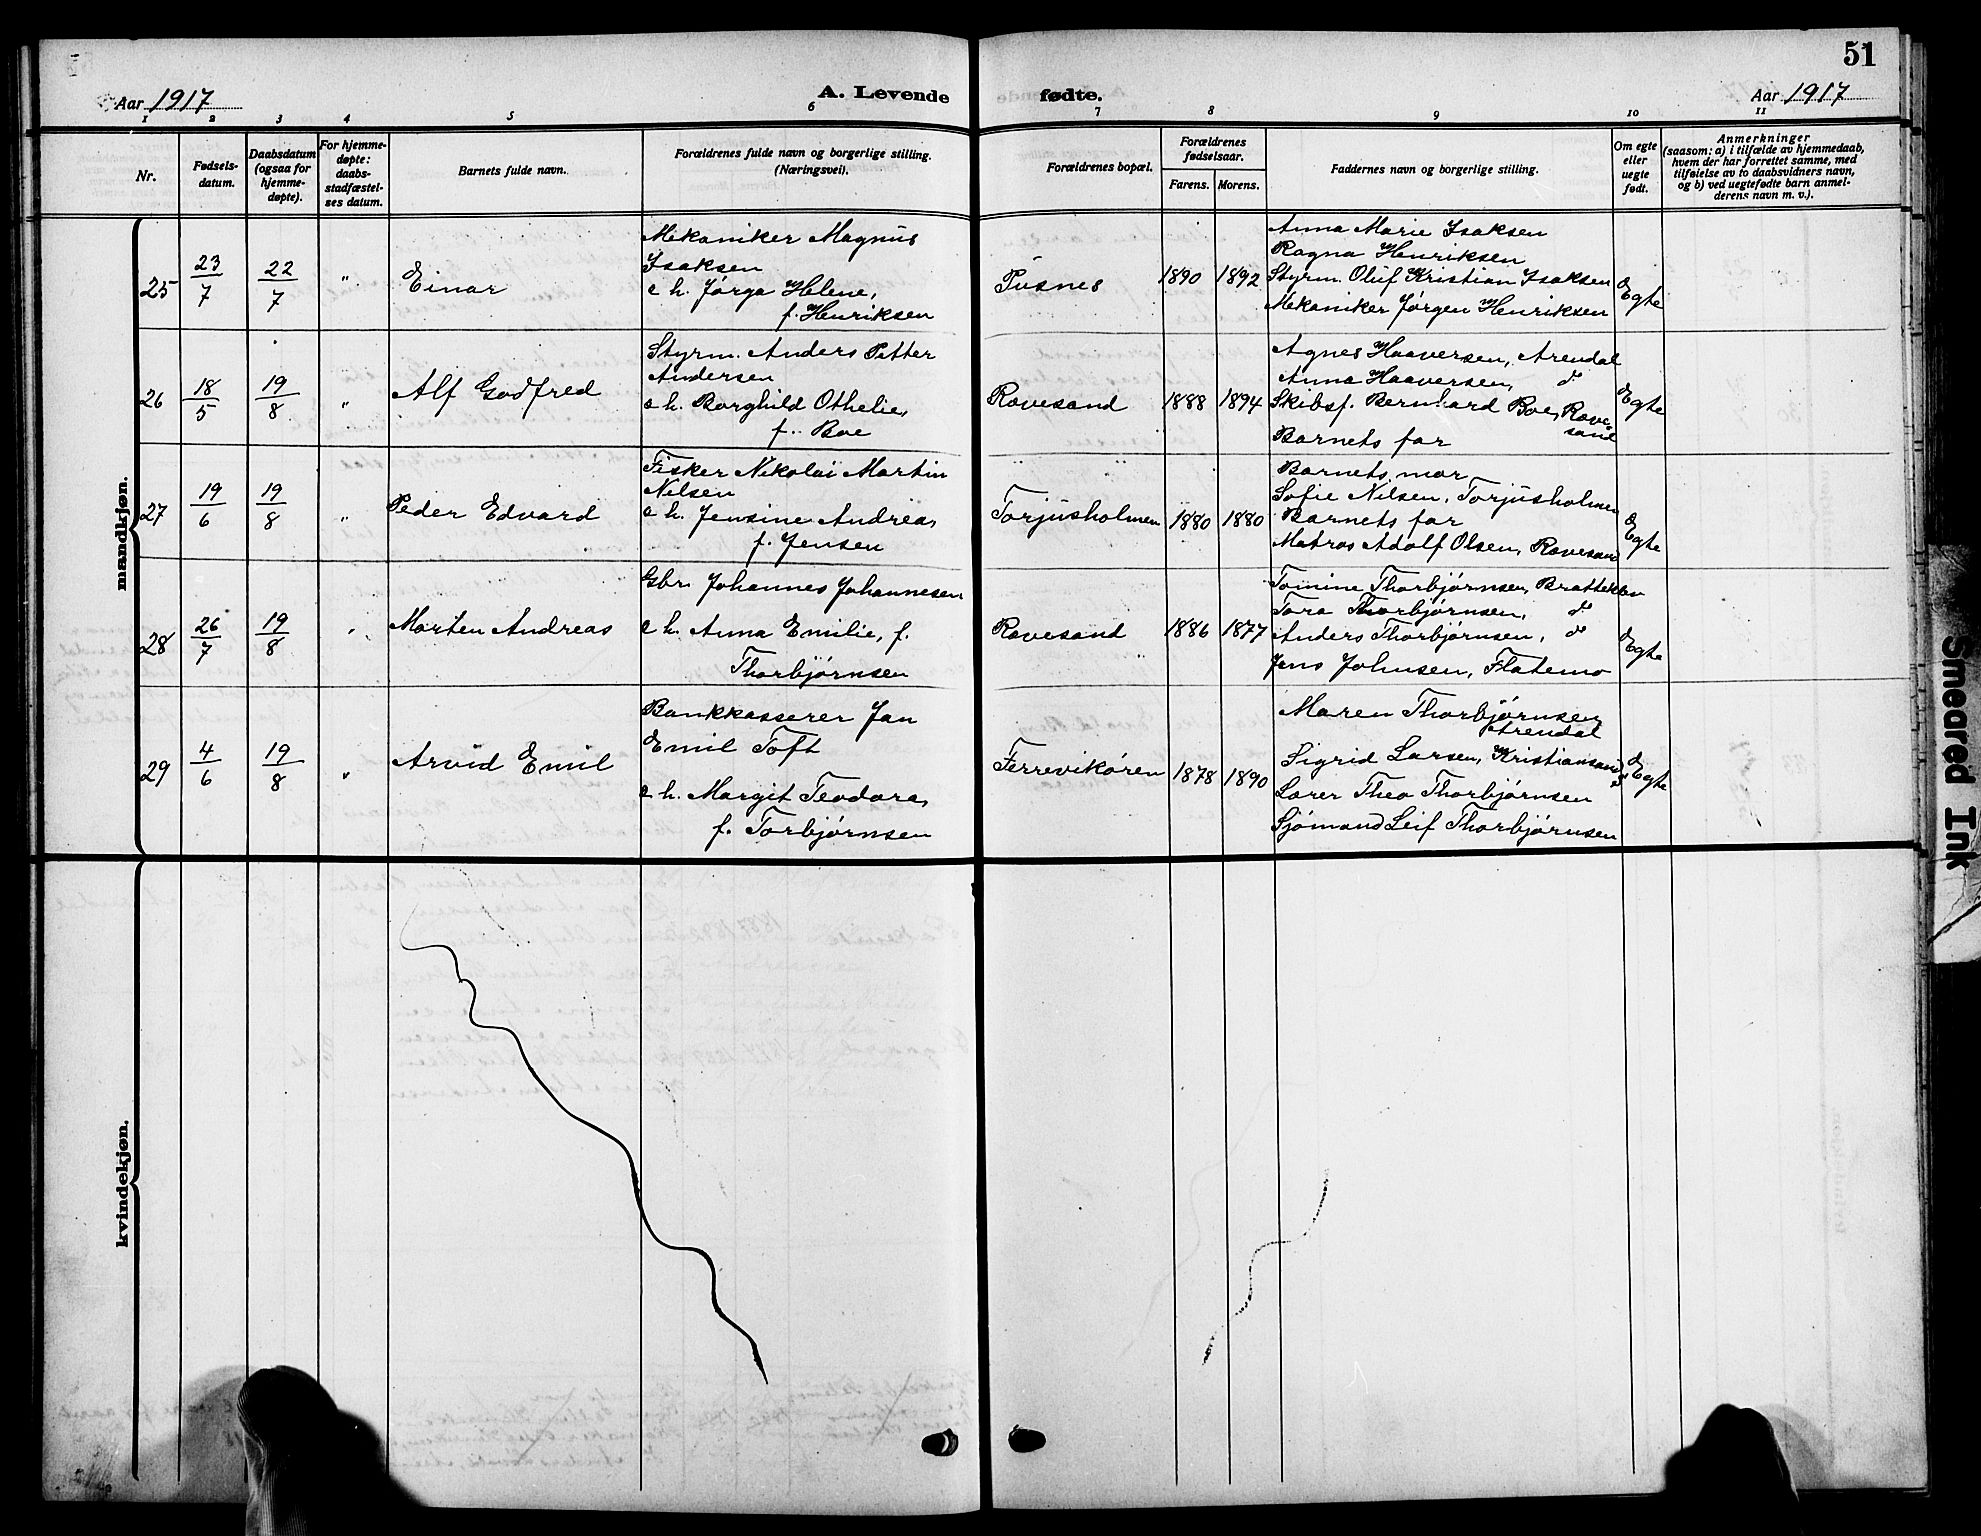 51
Aar 1917
A. Levende
fødte.
Aar 1917
1 2 3 4 5 6 7 8 9 10 11
Nr.
Fødsels-
datum.
Daabsdatum
(ogsaa for
hjemme-
døpte).
For hjemme-
døpte:
daabs-
stadfæstel-
ses datum.
Barnets fulde navn.
Forældrenes fulde navn og borgerlige stilling.
(Næringsvei).
Forældrenes bopæl.
Forældrenes
fødselsaar.
Farens. Morens.
Faddernes navn og borgerlige stilling.
Om egte
eller
uegte
født.
Anmerkninger
(saasom: a) i tilfælde av hjemmedaab,
hvem der har forrettet samme, med
tilføielse av to daabsvidners navn,
og b) ved uegtefødte barn anmel-
derens navn m. v.).
mandkjøn.
25
23/7
22/7
"
Einar
Mekaniker Magnus
Isaksen
e h. Jørga Helene,
f. Henriksen
Pusnes
1890
1892
Anna Marie Isaksen
Ragna Henriksen
Styrm. Oluf Kristian Isaksen
Mekaniker Jørgen Henriksen
Egte
26
18/5
19/8
"
Alf Godfred
Styrm. Anders Petter
Andersen
e h. Borghild Othelie,
f. Boe
Ravesand
1888
1894
Agnes Haaversen, Arendal
Anna Haaversen, do
Skibsf. Bernhard Boe, Rave-
sand
Barnets far
Egte
27
19/6
19/8
"
Peder Edvard
Fisker Nikolai Martin
Nilsen
e h. Jensine Andrea,
f. Jensen
Torjusholmen
1880
1880
Barnets mor
Sofie Nilsen, Torjusholmen
Barnets far
Matros Adolf Olsen, Ravesand
Egte
28
26/7
19/8
"
Morten Andreas
Gbr. Johannes Johannesen
e h. Anna Emilie, f.
Thorbjørnsen
Ravesand
1886
1877
Tomine Thorbjørnsen, Bratteklev
Tora Thorbjørnsen, do
Anders Thorbjørnsen, do
Jens Johnsen, Flatemo
Egte
29
4/6
19/8
"
Arvid Emil
Bankkasserer Jan
Emil Toft
e h. Margit Teodora,
f. Torbjørnsen
Færrevikøren
1878
1890
Maren Thorbjørnsen
Arendal
Sigrid Larsen, Kristiansand
Lærer Theo Thorbjørnsen
Sjømand Leif Thorbjørnsen
Egte
kvindekjøn.
Smeared Ink